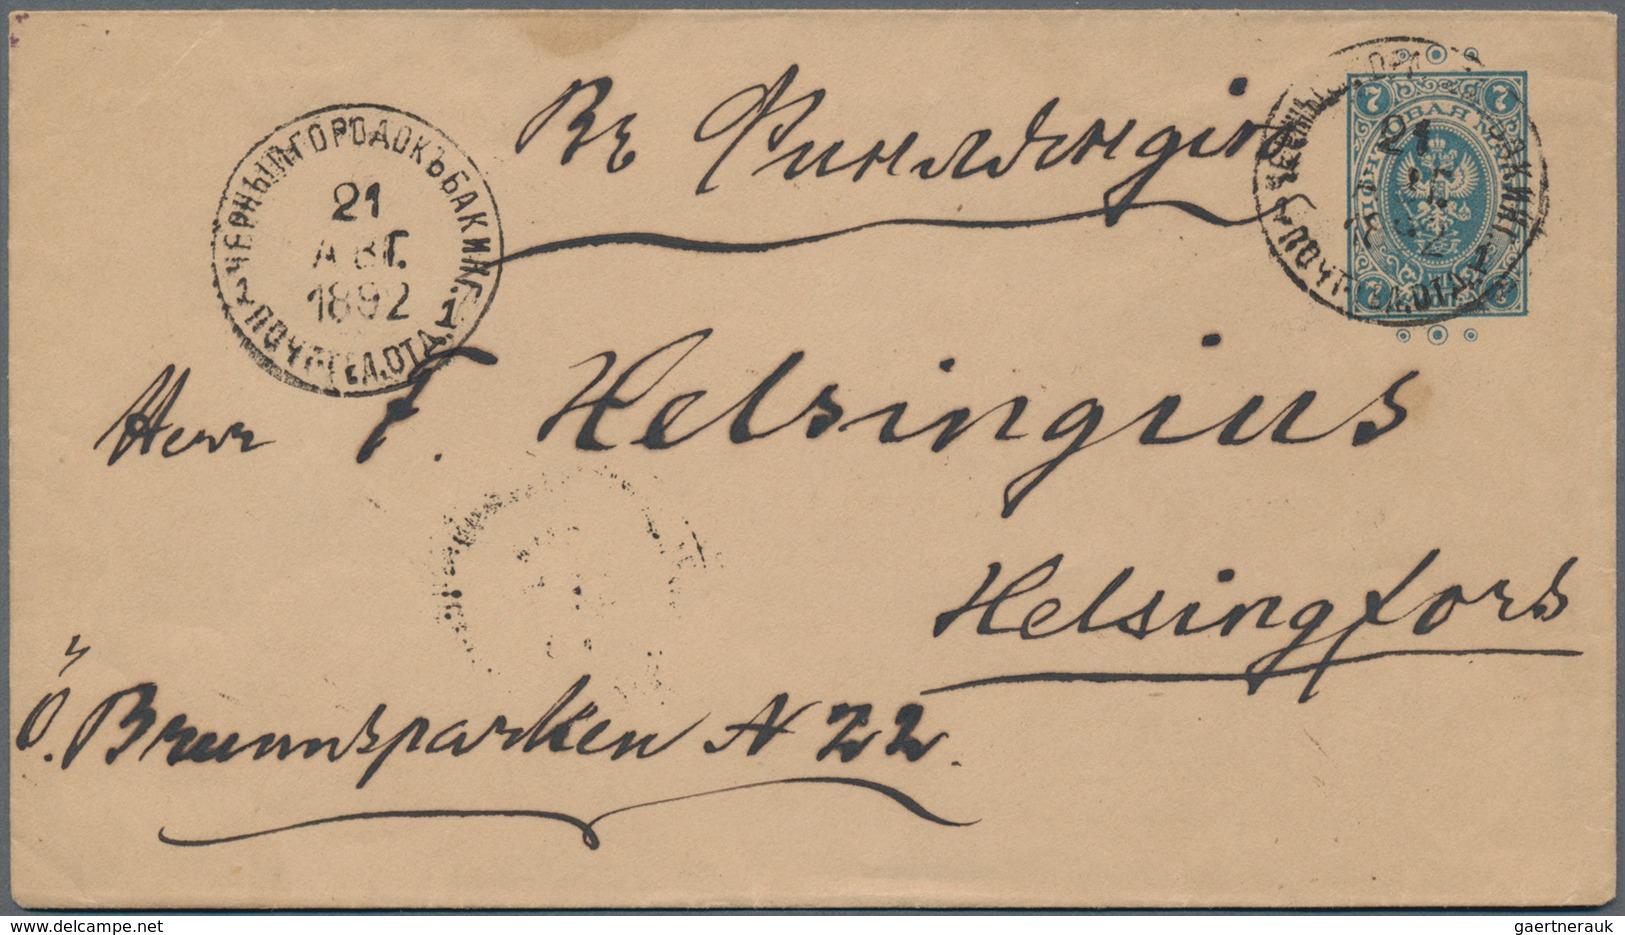 Въ Финляндію
ЧЕРНЫЙ ГОРОДОКЪ БАКИН.Г.
21
АВГ.
1892
ПОЧТ.ТЕЛ.ОТД. 1
7 7
7 7
21
Herr F. Helsingius
Helsingfors
Ö. Brunnsparken N 22.
www.delcampe.net
gaertnerauk